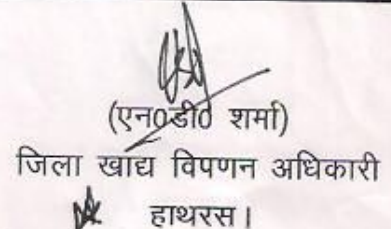 (एन0डी0 शर्मा)
जिला खाद्य विपणन अधिकारी
हाथरस।